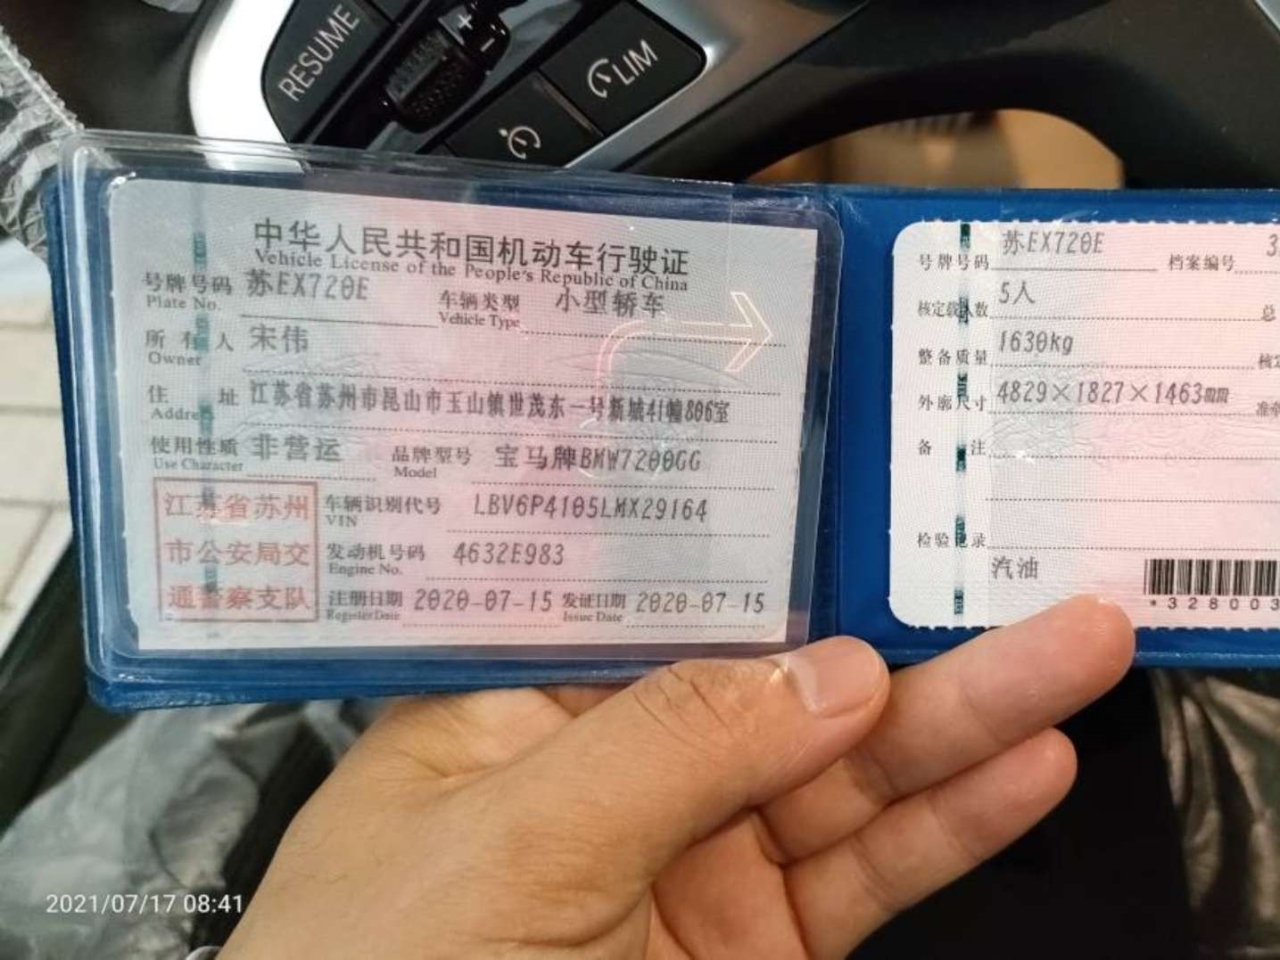 RESUME
+
-
LIM
中华人民共和国机动车行驶证
Vehicle License of the People's Republic of China
号牌号码 苏EX720E 车辆类型 小型轿车
Plate No. Vehicle Type
所有人 宋伟
Owner
住址 江苏省苏州市昆山市玉山镇世茂东一号新城41幢806室
Address
使用性质 非营运 品牌型号 宝马牌BMW7200GG
Use Character Model
江苏省苏州
市公安局交
通警察支队
车辆识别代号 LBV6P4105LMX29164
VIN
发动机号码 4632E983
Engine No.
注册日期 2020-07-15 发证日期 2020-07-15
Register Date Issue Date
号牌号码 苏EX720E 档案编号 3
核定载人数 5人 总
整备质量 1630kg 核
外廓尺寸 4829×1827×1463mm 准
备注
检验记录
汽油
*328003
2021/07/17 08:41